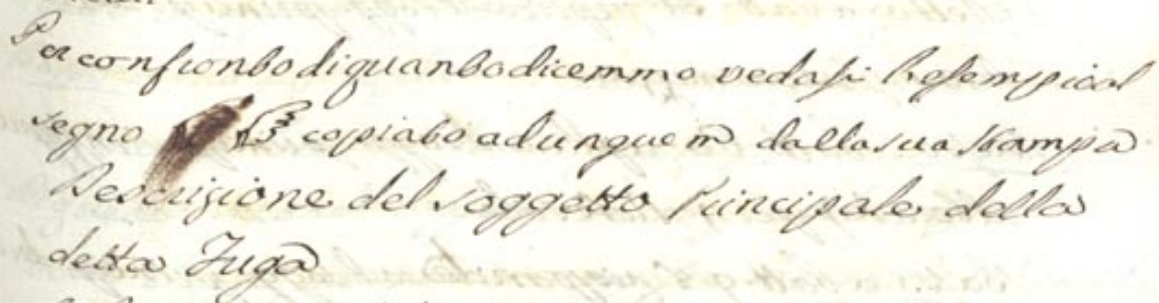 Per confronto di quanto dicemmo vedasi l'esempio al
segno copiato ad unguem dalla sua stampa
Descrizione del soggetto Principale della
detta Fuga